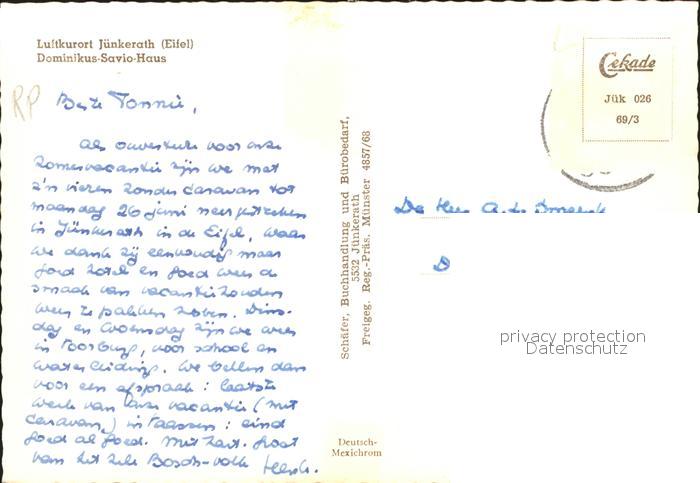 Luftkurort Jünkerath (Eifel)
Dominikus-Savio-Haus
RP
Beste Tonnie,
Als ouverture voor onze
zomervacantie zijn we met
z'n vieren zonder caravan tot
maandag 26 juni neergestreken
in Jünkerath in de Eifel, waar
we dank zij eenvoudig maar
goed hotel en goed weer de
smaak van vacantiehouden
weer te pakken hebben. Dins-
dag en woensdag zijn we weer
in Voorburg, voor school en
waterleidings. We bellen dan
voor een afspraak: laatste
week van onze vacantie (met
caravan) in Vaassen: eind
goed al goed. Met hart. groet
van het hele Bosch-volk
Schäfer, Buchhandlung und Bürobedarf,
5532 Jünkerath
Freigeg. Reg.-Präs. Münster 4857/68
Deutsch-
Mexichrom
Cekade
Jük 026
69/3
De Heer
D
privacy protection
Datenschutz